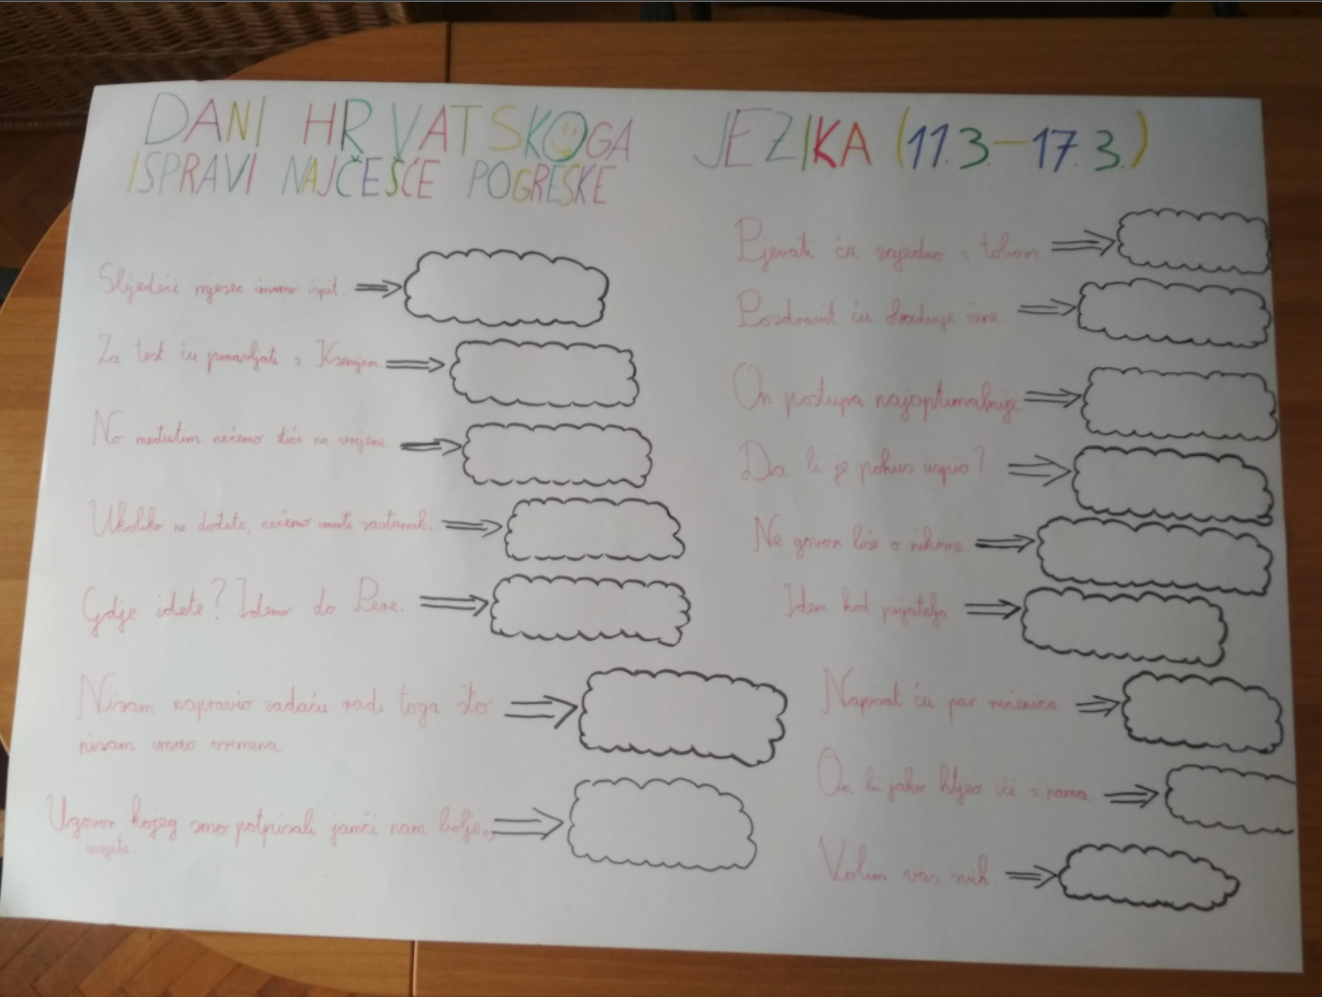 DANI HRVATSKOGA JEZIKA (11.3.-17.3.)
ISPRAVI NAJČEŠĆE POGREŠKE
Sljedeći mjesec imamo ispit.
Za test ću ponavljati s Ksenijom.
No međutim nećemo stići na vrijeme.
Ukoliko ne dođete, nećemo imati sastanak.
Gdje idete? Idemo do Pere.
Nisam napravio zadaću radi toga što
nisam imao vremena.
Ugovor kojeg smo potpisali jamči nam bolje
uvjete.
Pjevati ću zajedno s tobom.
Pozdravit ću
On postupa najoptimalnije.
Da li je pokus uspio?
Ne govori loše o nikome.
Idem kod prijatelja
Napisat ću par rečenica.
On bi jako htjeo ići s nama.
Volim vas svih.